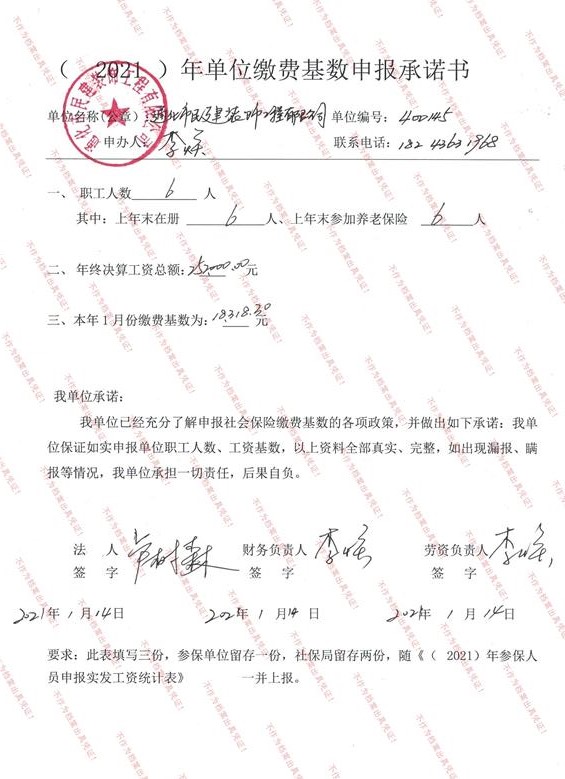 （ 2021 ）年单位缴费基数申报承诺书
单位名称(公章)： 单位编号：400145
申办人： 联系电话：182 4363 1968
一、 职工人数 6 人
其中：上年末在册 6 人、上年末参加养老保险 6 人
二、 年终决算工资总额：252000.00元
三、本年1月份缴费基数为：18318.30 元
我单位承诺：
我单位已经充分了解申报社会保险缴费基数的各项政策，并做出如下承诺：我单
位保证如实申报单位职工人数、工资基数，以上资料全部真实、完整，如出现漏报、瞒
报等情况，我单位承担一切责任，后果自负。
法 人 财务负责人 劳资负责人
签 字 签 字 签 字
2021年 1月14日 2021年 1月14日 2021年 1月14日
要求：此表填写三份，参保单位留存一份，社保局留存两份，随《（ 2021）年参保人
员申报实发工资统计表》 一并上报。
不作为档案出具凭证！